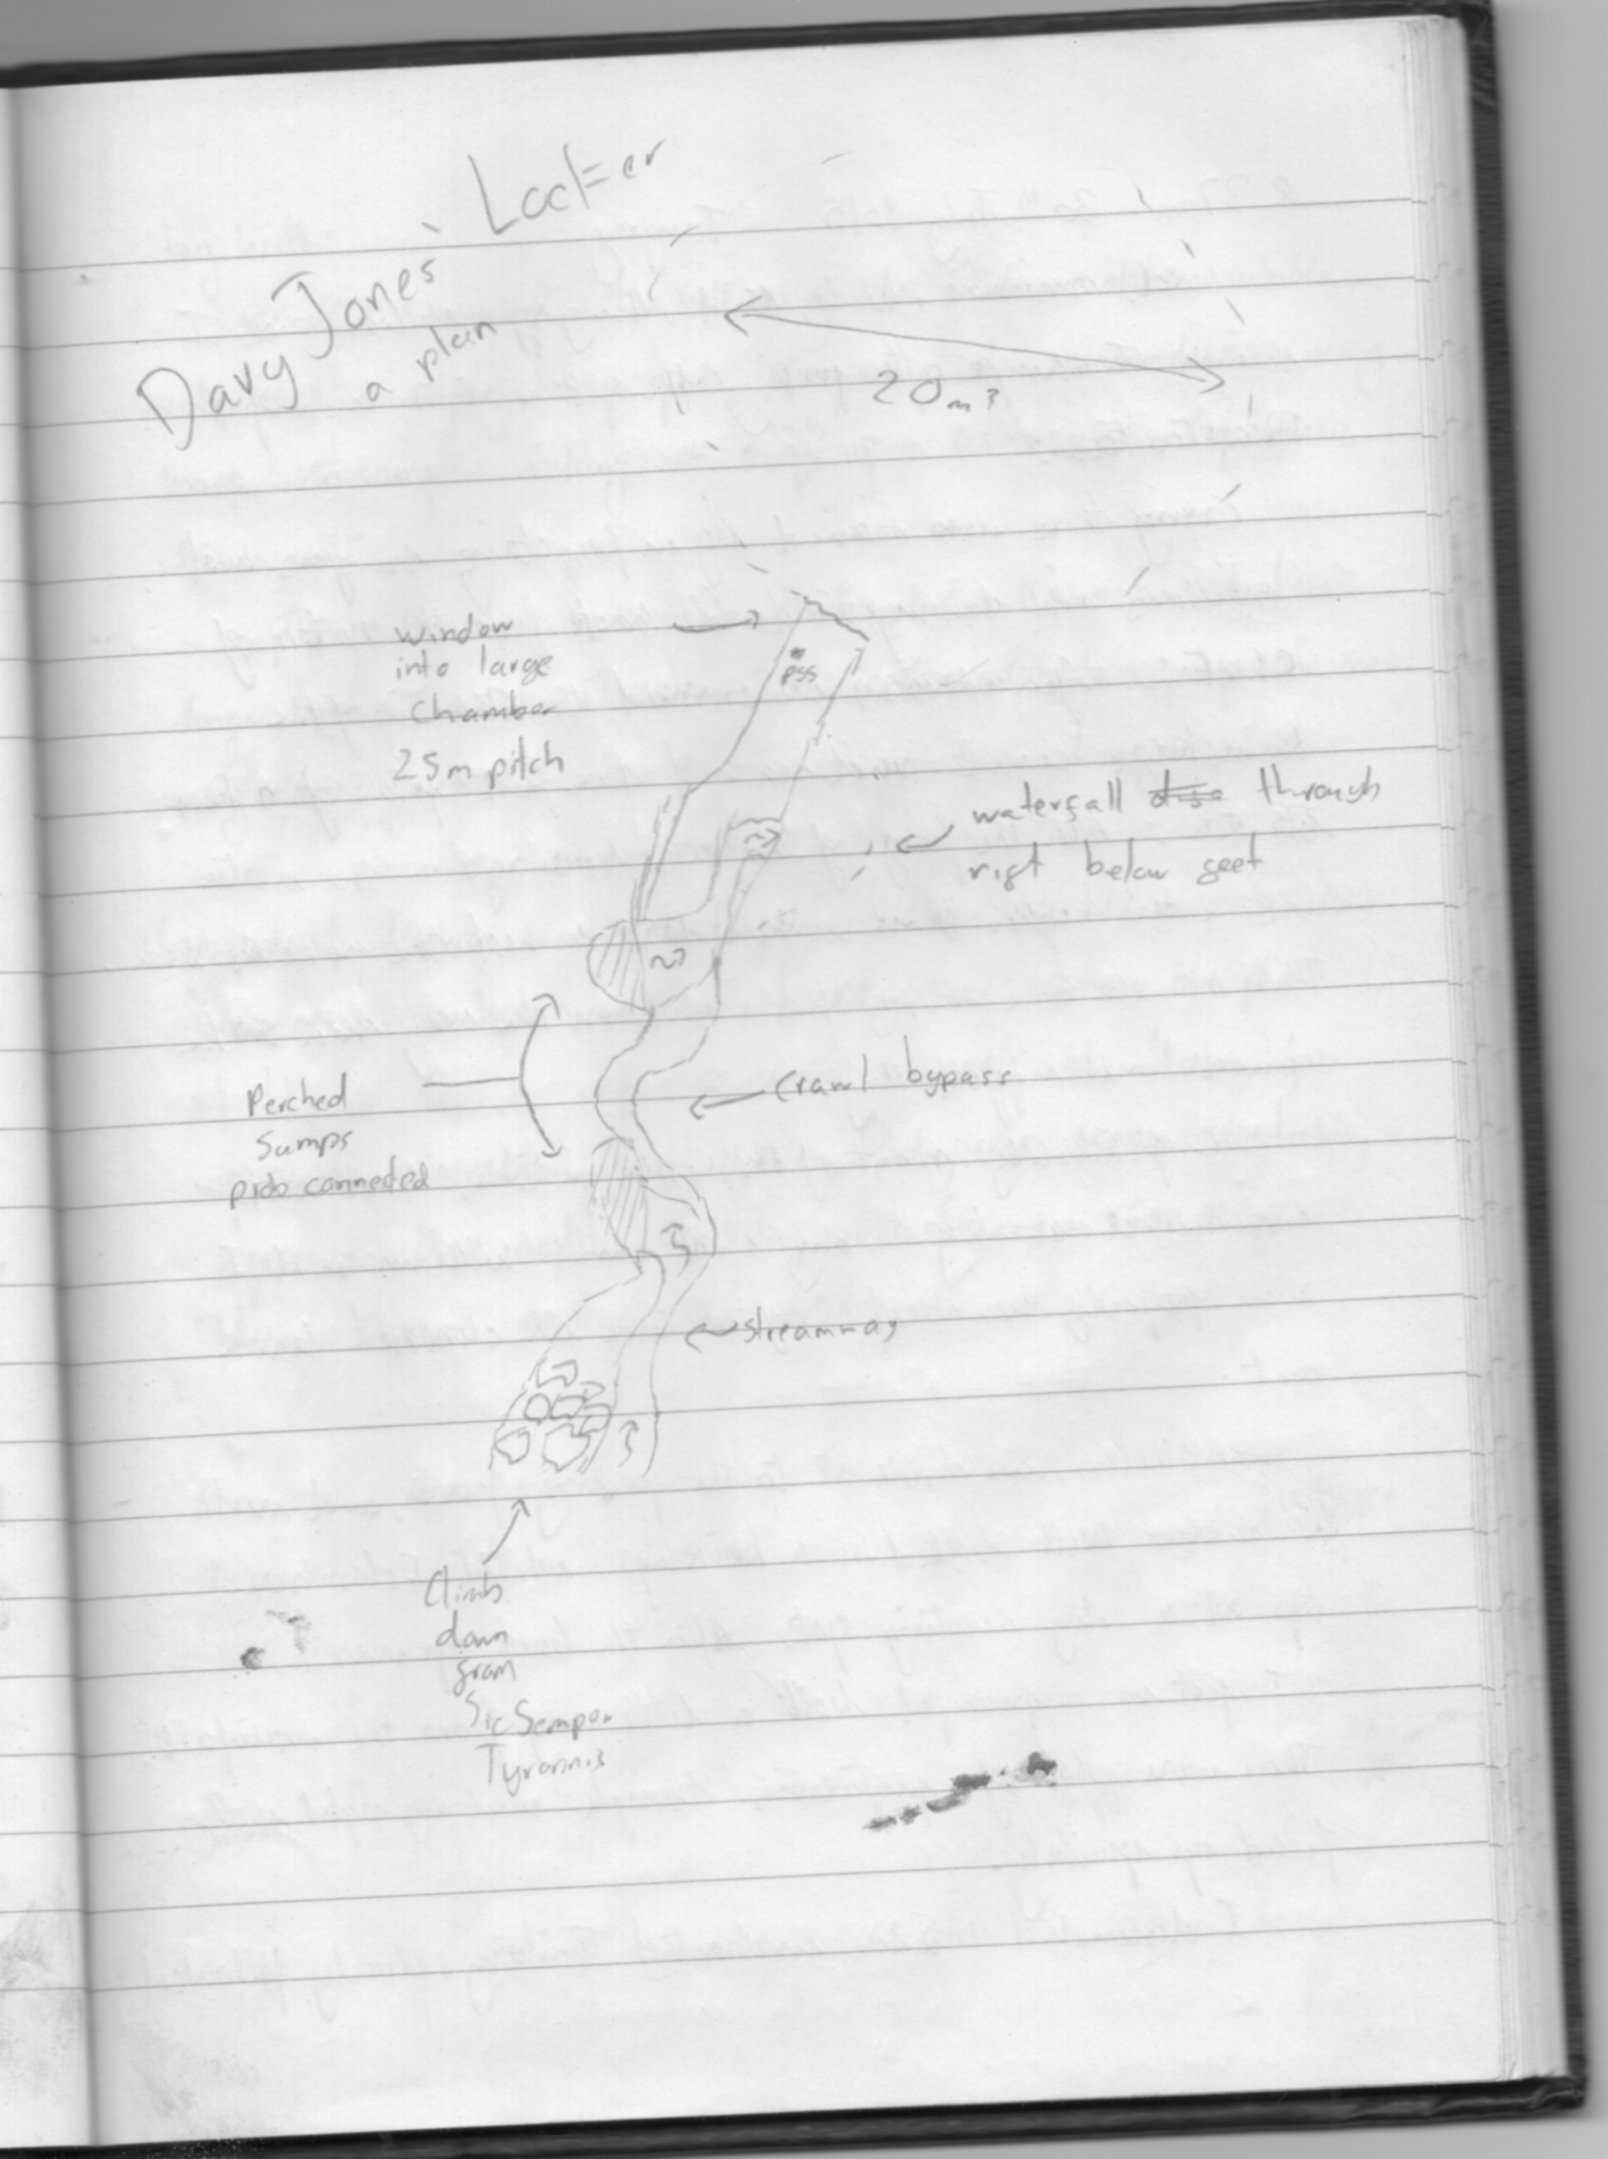 Davy Jones' Locker
a plan
20m?
window
into large
Chamber
25m pitch
pss
waterfall through
right below feet
Perched
Sumps
prob connected
Crawl bypass
streamway
Climb
down
from
Sic Semper
Tyrannis